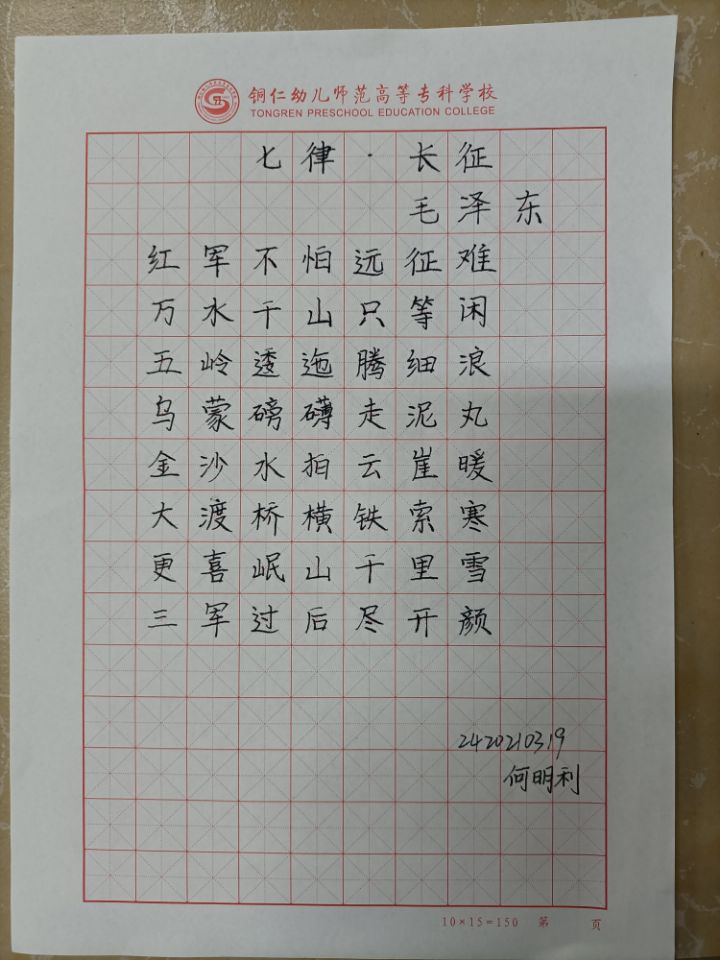 铜仁幼儿师范高等专科学校
TONGREN PRESCHOOL EDUCATION COLLEGE
七律·长征
毛泽东
红军不怕远征难
万水千山只等闲
五岭逶迤腾细浪
乌蒙磅礴走泥丸
金沙水拍云崖暖
大渡桥横铁索寒
更喜岷山千里雪
三军过后尽开颜
2420210319
何明利
10×15=150 第 页